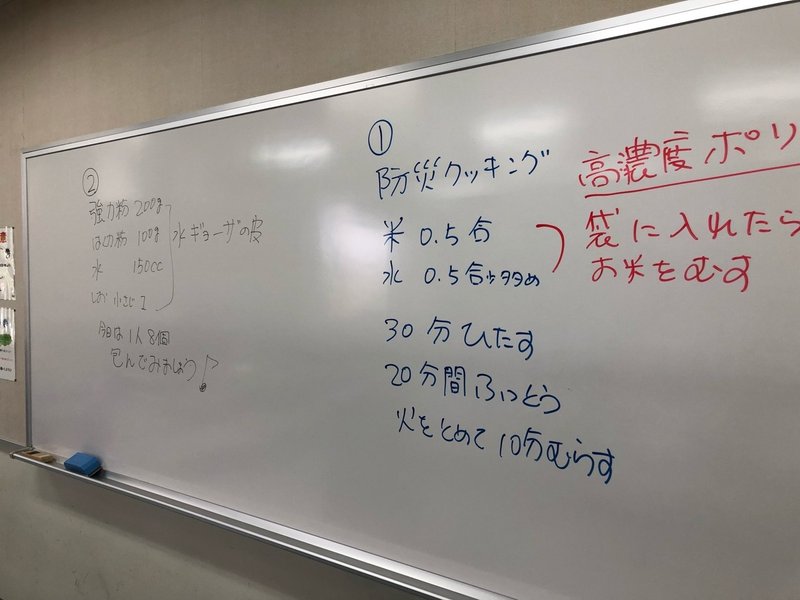 ①
防災クッキング
米 0.5合
水 0.5合少多め
30分ひたす
20分間ふっとう
火をとめて10分むらす
高濃度ポリ
袋に入れたら
お米をむす
②
強力粉 200g
はく力粉 100g
水 150cc
しお 小さじ1
水ギョーザの皮
今日は1人8個
包んでみましょう♪